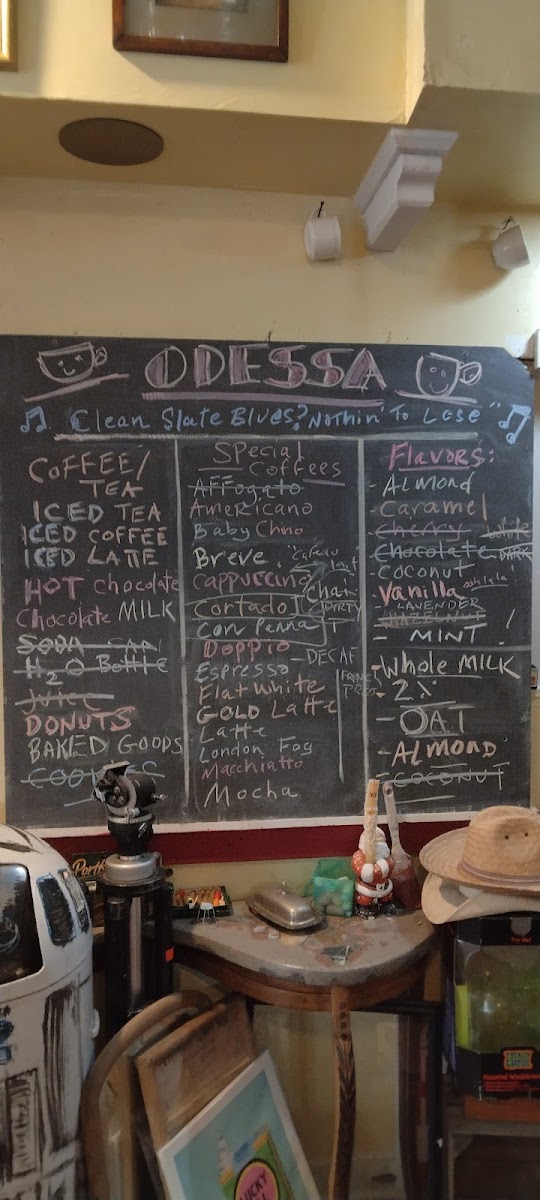 ODESSA
Clean Slate Blues? Nothin' To Lose"
COFFEE/
TEA
ICED TEA
ICED COFFEE
ICED LATTE
HOT Chocolate
Chocolate MILK
SODA CAN
H2O Bottle
JUICE
DONUTS
BAKED GOODS
COOKIES
Special
Coffees
AFFogato
Americano
Baby Chino
Breve
Cappuccino
Cortado
Con Panna
Doppio
Espresso
Flat White
GOLD Latte
Latte
London Fog
Macchiatto
Mocha
"Cafe au
lait"
Chai
DIRTY
- DECAF
PRESS
Flavors:
- ALMOND
- Caramel
- Cherry - White
- Chocolate - DARK
- COCONUT
- Vanilla ooh la la
LAVENDER
- HAZELNUT
- MINT !
- Whole MILK
- 2%
- OAT
- ALMOND
- COCONUT
LUCKY